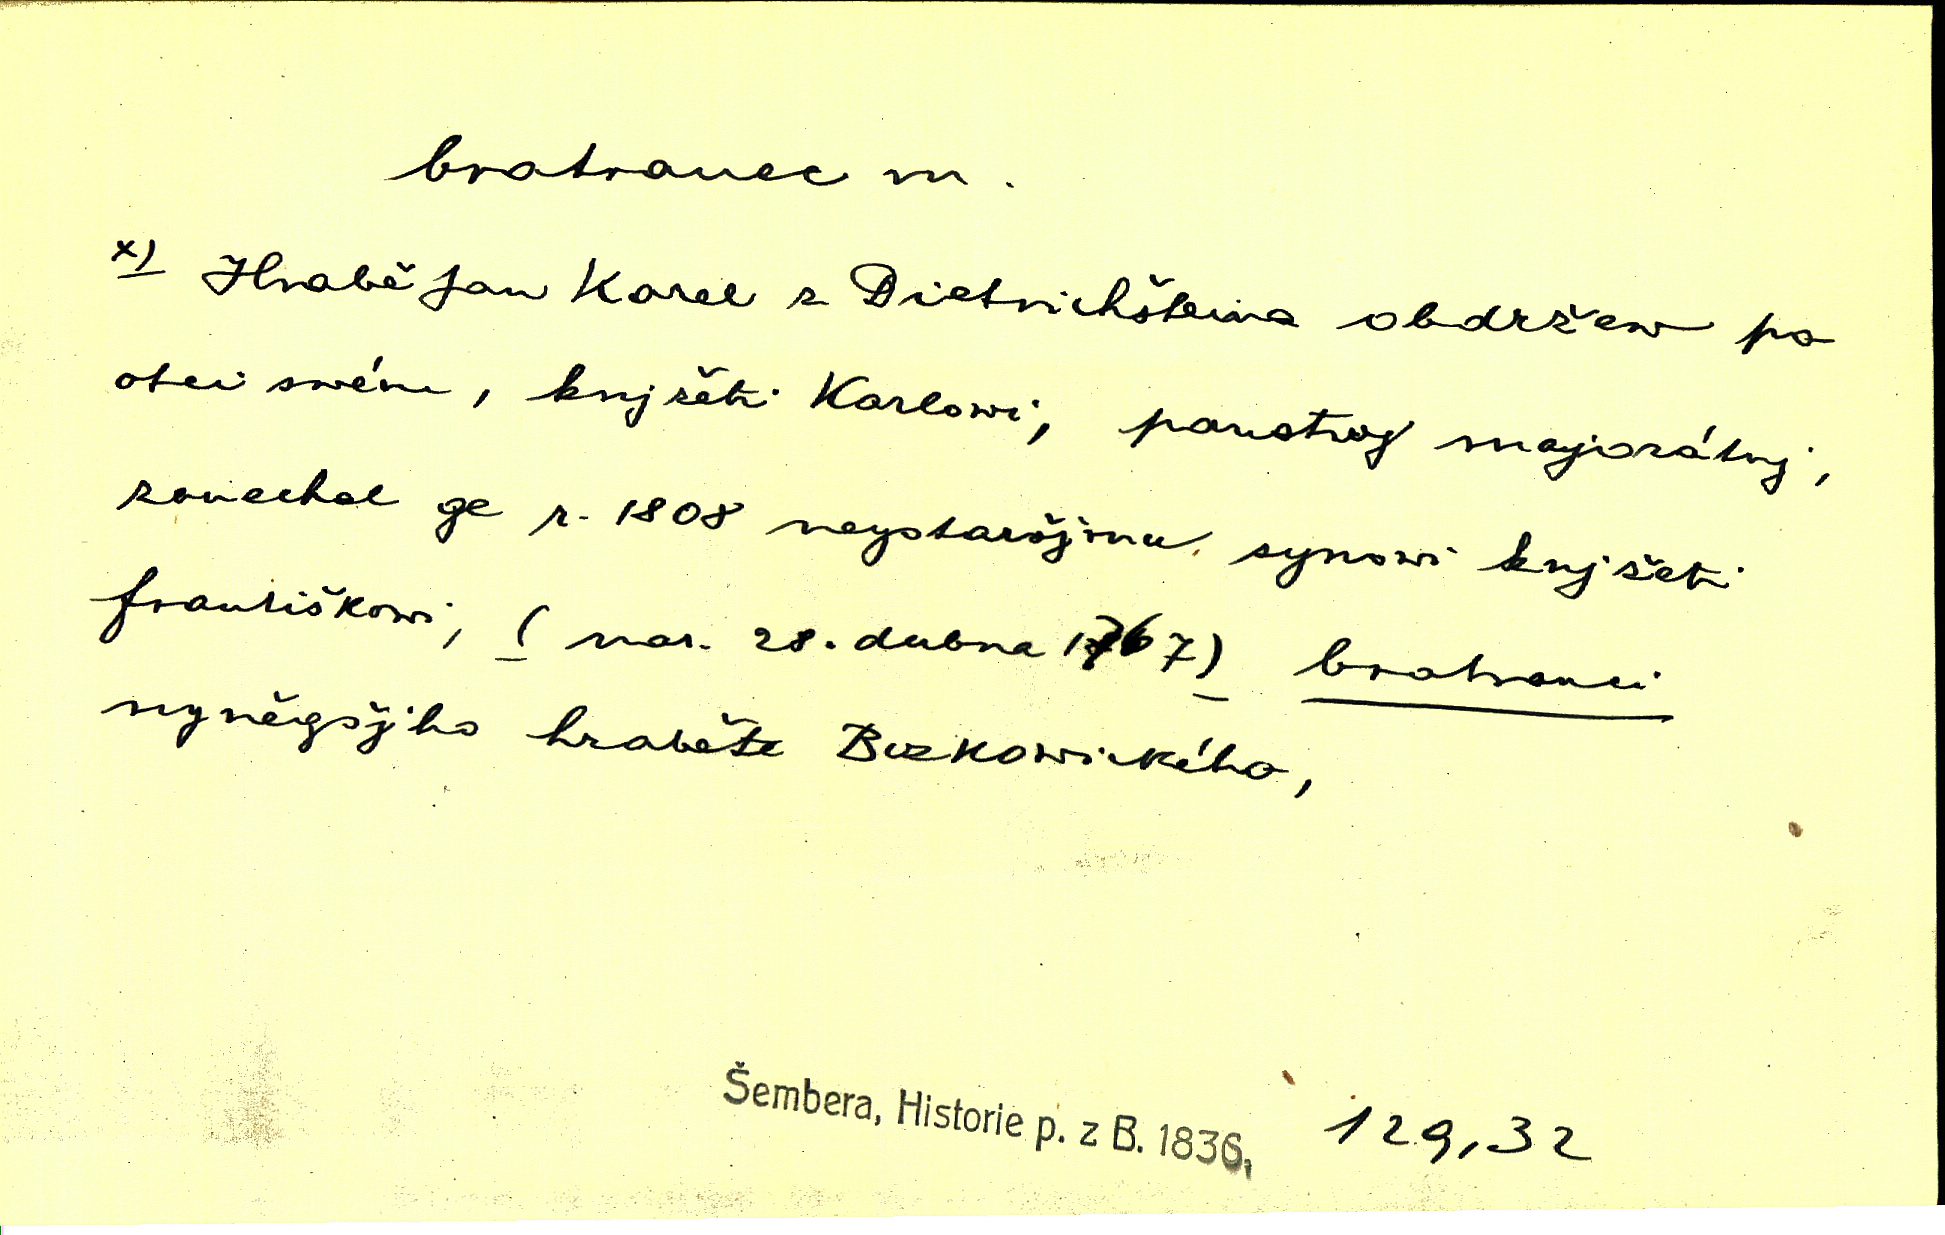 bratranec m.
x) Hrabě Jan Karel z Dietrichšteina obdržew po
otci swém, knjžeti Karlowi, panstwj majorátnj,
zanechal ge r. 1808 neystaršjmu synowi knjžeti
Františkowi, ( nar. 28. dubna 1767) bratranci
nyněgšjho hraběte Buzkowického,
Šembera, Historie p. z B. 1836, 129,32